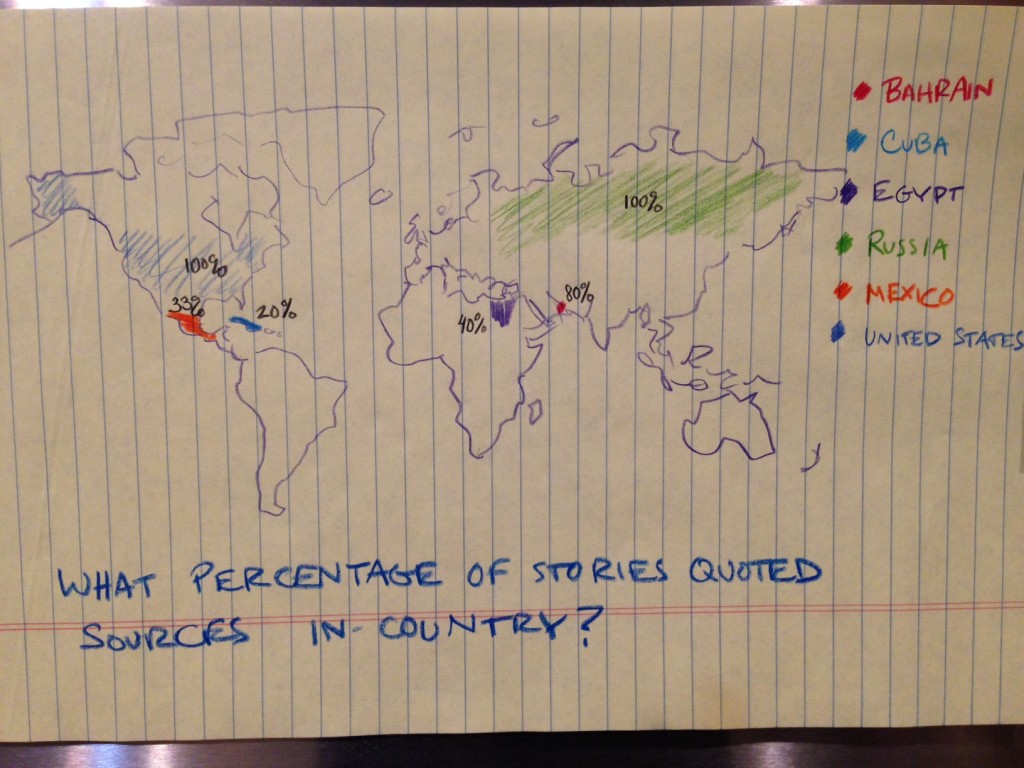 BAHRAIN
CUBA
EGYPT
RUSSIA
MEXICO
UNITED STATES
100%
100%
33%
20%
40%
80%
WHAT PERCENTAGE OF STORIES QUOTED
SOURCES IN-COUNTRY?